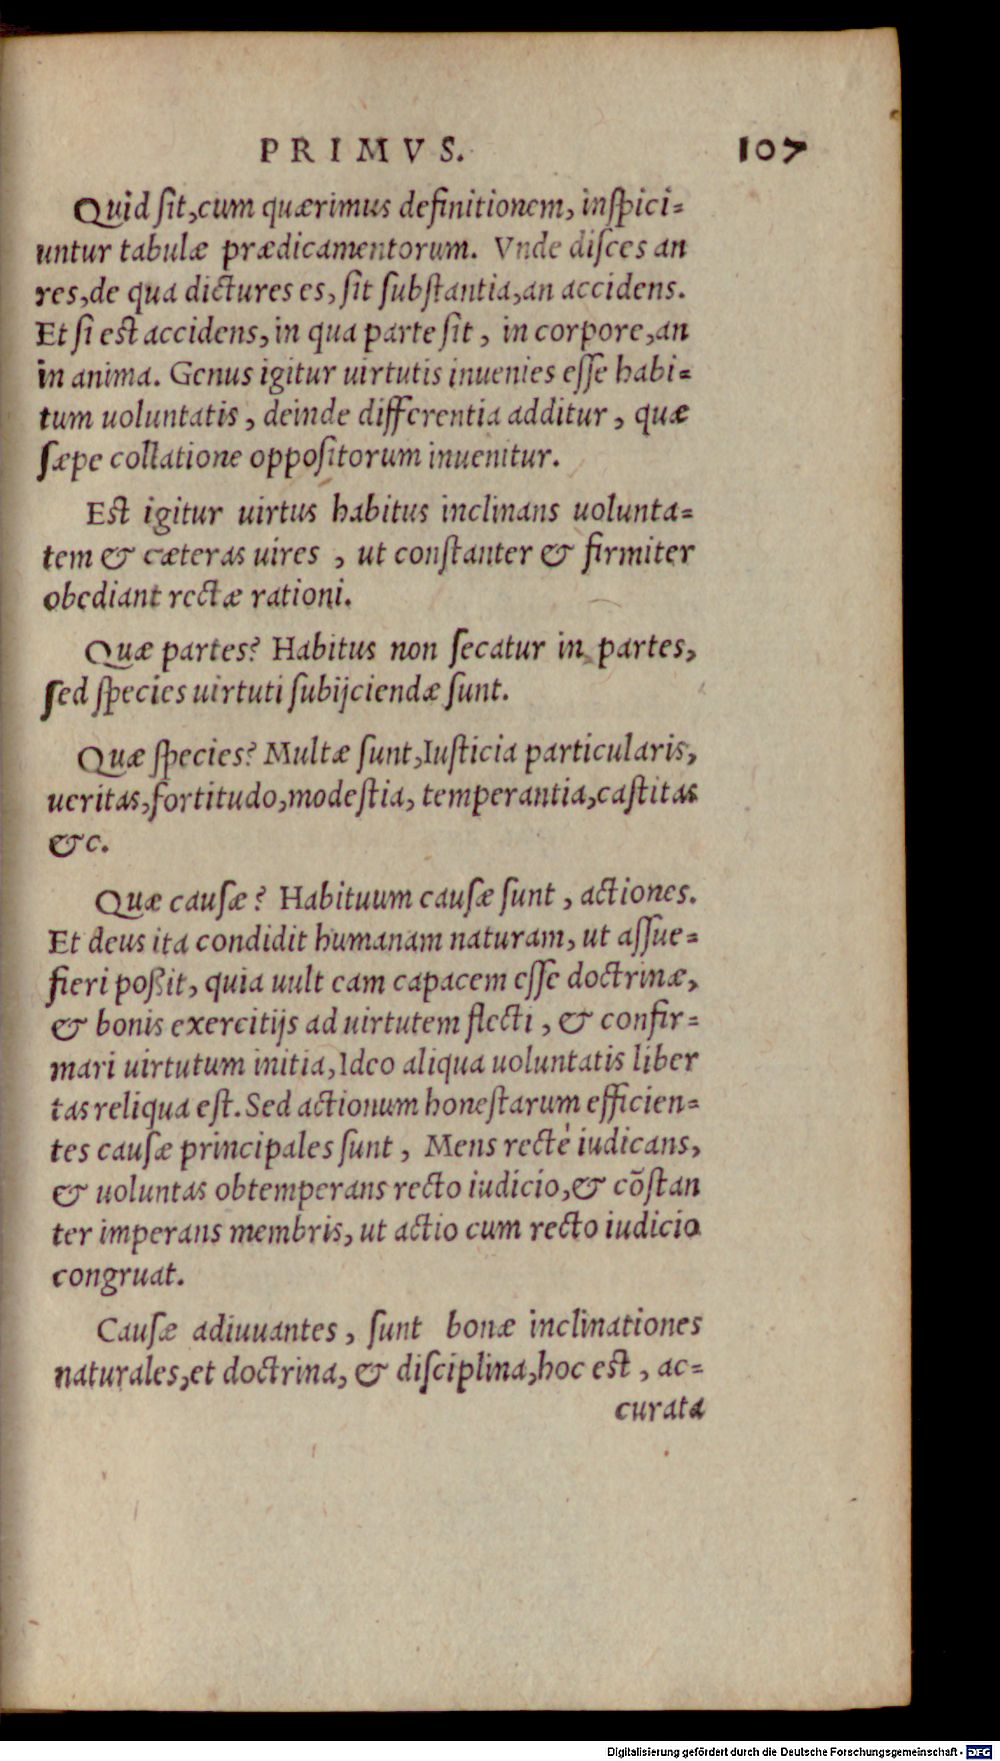 PRIMVS. 107
Quid ſit, cum quærimus definitionem, inſpici=
untur tabulæ prædicamentorum. Vnde diſces an
res, de qua dictures es, ſit ſubſtantia, an accidens.
Et ſi eſt accidens, in qua parte ſit, in corpore, an
in anima. Genus igitur uirtutis inuenies eſſe habi=
tum uoluntatis, deinde differentia additur, quæ
ſæpe collatione oppoſitorum inuenitur.
Eſt igitur uirtus habitus inclinans uolunta=
tem & cæteras uires, ut conſtanter & firmiter
obediant rectæ rationi.
Quæ partes? Habitus non ſecatur in partes,
ſed ſpecies uirtuti ſubijciendæ ſunt.
Quæ ſpecies? Multæ ſunt, Iuſticia particularis,
ueritas, fortitudo, modeſtia, temperantia, caſtitas
&c.
Quæ cauſæ? Habituum cauſæ ſunt, actiones.
Et deus ita condidit humanam naturam, ut aſſue=
fieri poßit, quia uult eam capacem eſſe doctrinæ,
& bonis exercitijs ad uirtutem flecti, & confir=
mari uirtutum initia, Ideo aliqua uoluntatis liber
tas reliqua eſt. Sed actionum honeſtarum efficien=
tes cauſæ principales ſunt, Mens rectè iudicans,
& uoluntas obtemperans recto iudicio, & cõſtan
ter imperans membris, ut actio cum recto iudicio
congruat.
Cauſæ adiuuantes, ſunt bonæ inclinationes
naturales, et doctrina, & diſciplina, hoc eſt, ac=
curata
Digitalisierung gefördert durch die Deutsche Forschungsgemeinschaft - DFG